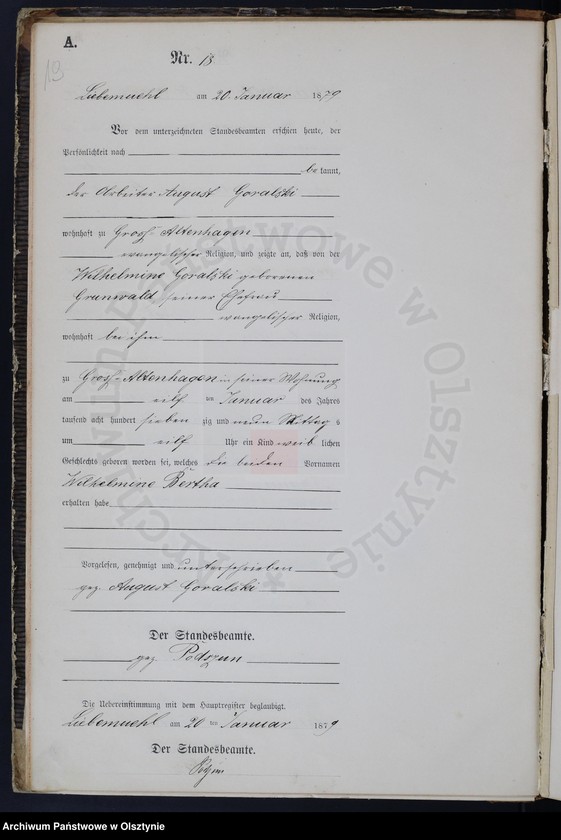 A.
13
Nr. 13
Liebemuehl am 20. Januar 1879
Vor dem unterzeichneten Standesbeamten erschien heute, der
Persönlichkeit nach
bekannt,
der Arbeiter August Goralski
wohnhaft zu Gross-Altenhagen
evangelischer Religion, und zeigte an, daß von der
Wilhelmine Goralski geborenen
Grunwald seiner Ehefrau
evangelischer Religion,
wohnhaft bei ihm
zu Gross-Altenhagen in seiner Wohnung
am elf ten Januar des Jahres
tausend acht hundert sieben zig und neun Mittag s
um elf Uhr ein Kind weib lichen
Geschlechts geboren worden sei, welches die beiden Vornamen
Wilhelmine Bertha
erhalten habe
Vorgelesen, genehmigt und unterschrieben
gez. August Goralski
Der Standesbeamte.
gez. Podszun
Die Uebereinstimmung mit dem Hauptregister beglaubigt.
Liebemuehl am 20 ten Januar 1879
Der Standesbeamte.
Archiwum Państwowe w Olsztynie
* Archiwum Państwowe w Olsztynie